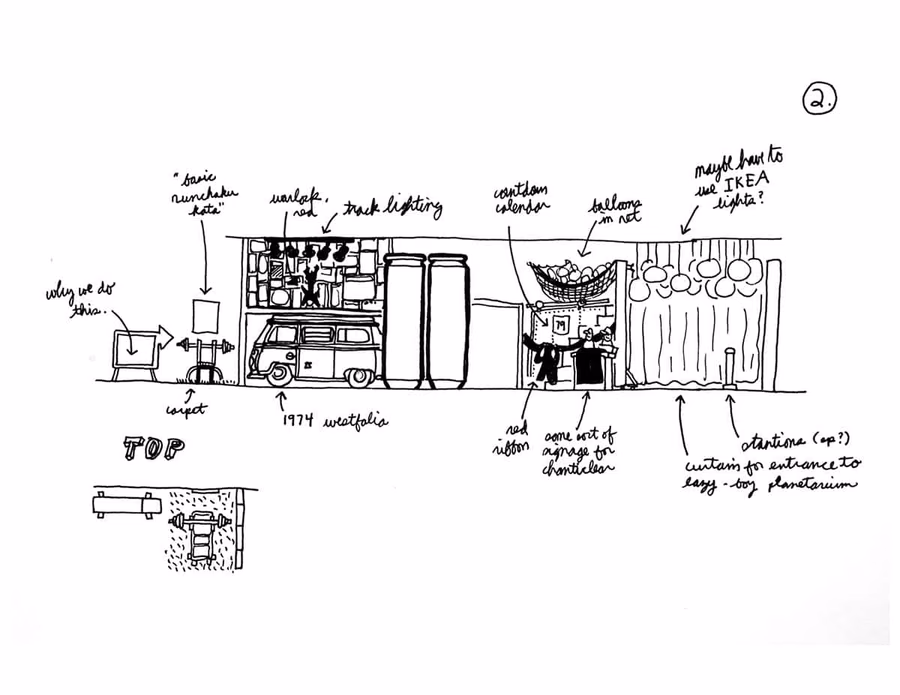 2.
"basic
nunchaku
kata"
warlock,
red
track lighting
countdown
calendar
balloons
in net
maybe have to
use IKEA
lights?
why we do
this.
79
carpet
1974 westfalia
red
ribbon
some sort of
signage for
chanticlear
stantions (sp?)
curtain for entrance to
lazy-boy planetarium
TOP